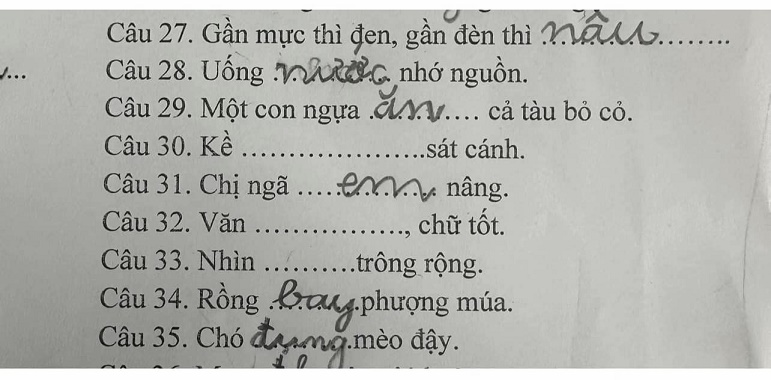 Câu 27. Gần mực thì đen, gần đèn thì nâu
Câu 28. Uống nước nhớ nguồn.
Câu 29. Một con ngựa ăn.... cả tàu bỏ cỏ.
Câu 30. Kề ......................sát cánh.
Câu 31. Chị ngã ....em nâng.
Câu 32. Văn .................., chữ tốt.
Câu 33. Nhìn ...........trông rộng.
Câu 34. Rồng bay phượng múa.
Câu 35. Chó đụng mèo đậy.